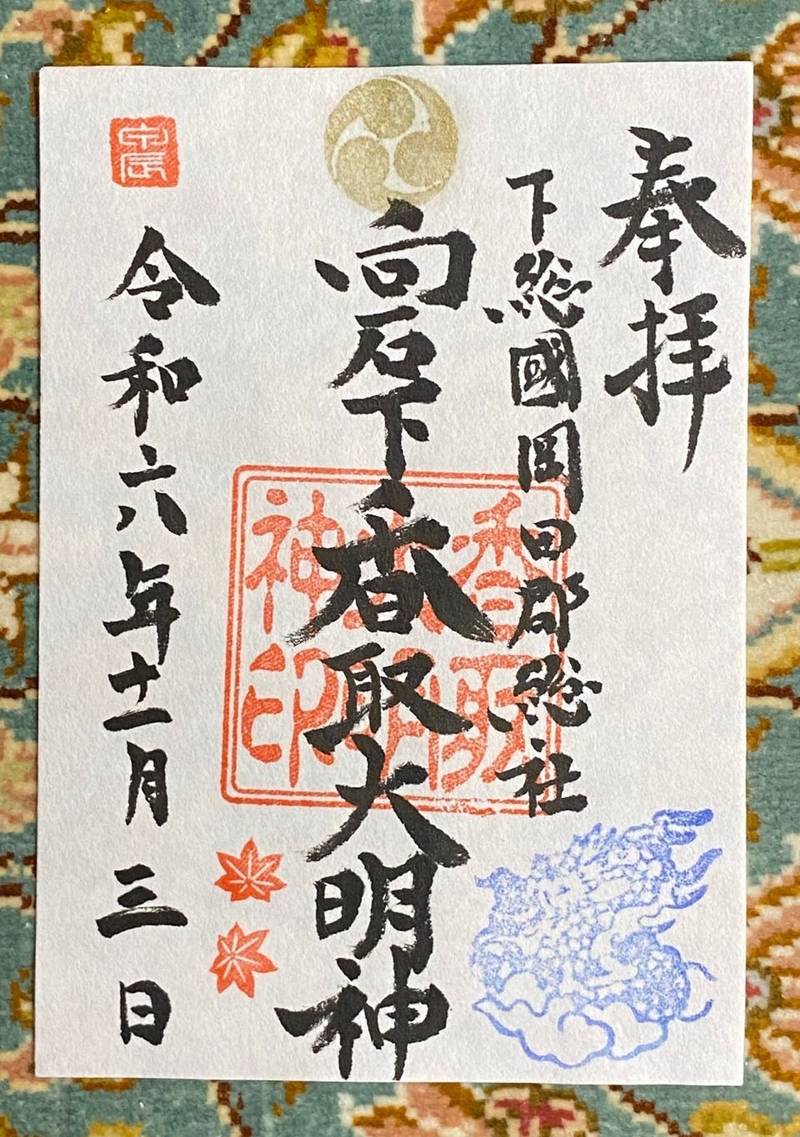 奉拝
下総國岡田郡総社
向石下香取大明神
香取大明神印
令和六年十一月三日
甲辰